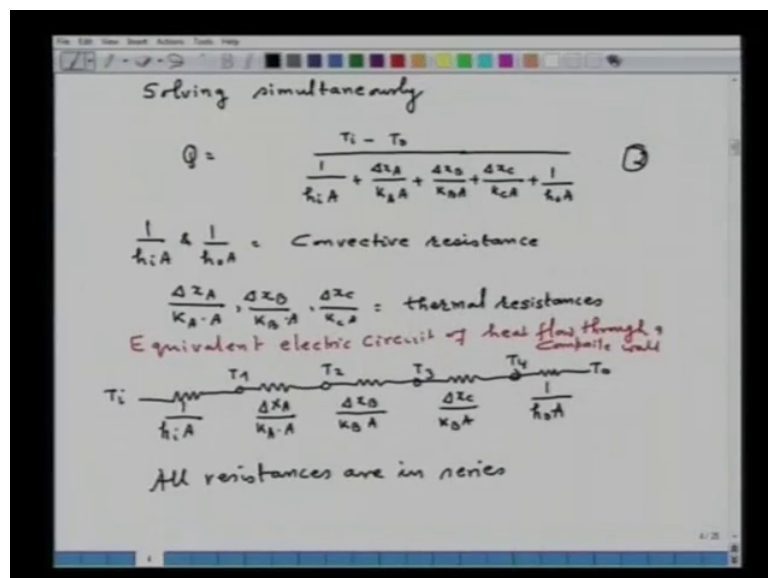 File Edit View Insert Actions Tools Help
Solving simultaneously
Q = (Ti - To) / (1/(hiA) + ΔxA/(KAA) + ΔxB/(KBA) + ΔxC/(KCA) + 1/(hoA)) (2)
1/(hiA) & 1/(hoA) = Convective resistance
ΔxA/(KA·A), ΔxB/(KB·A), ΔxC/(KCA) = thermal resistances
Equivalent electric circuit of heat flow through a
Composite wall
Ti T1 T2 T3 T4 To
1/(hiA) ΔxA/(KA·A) ΔxB/(KBA) ΔxC/(KBA) 1/(hoA)
All resistances are in series
4/25
4